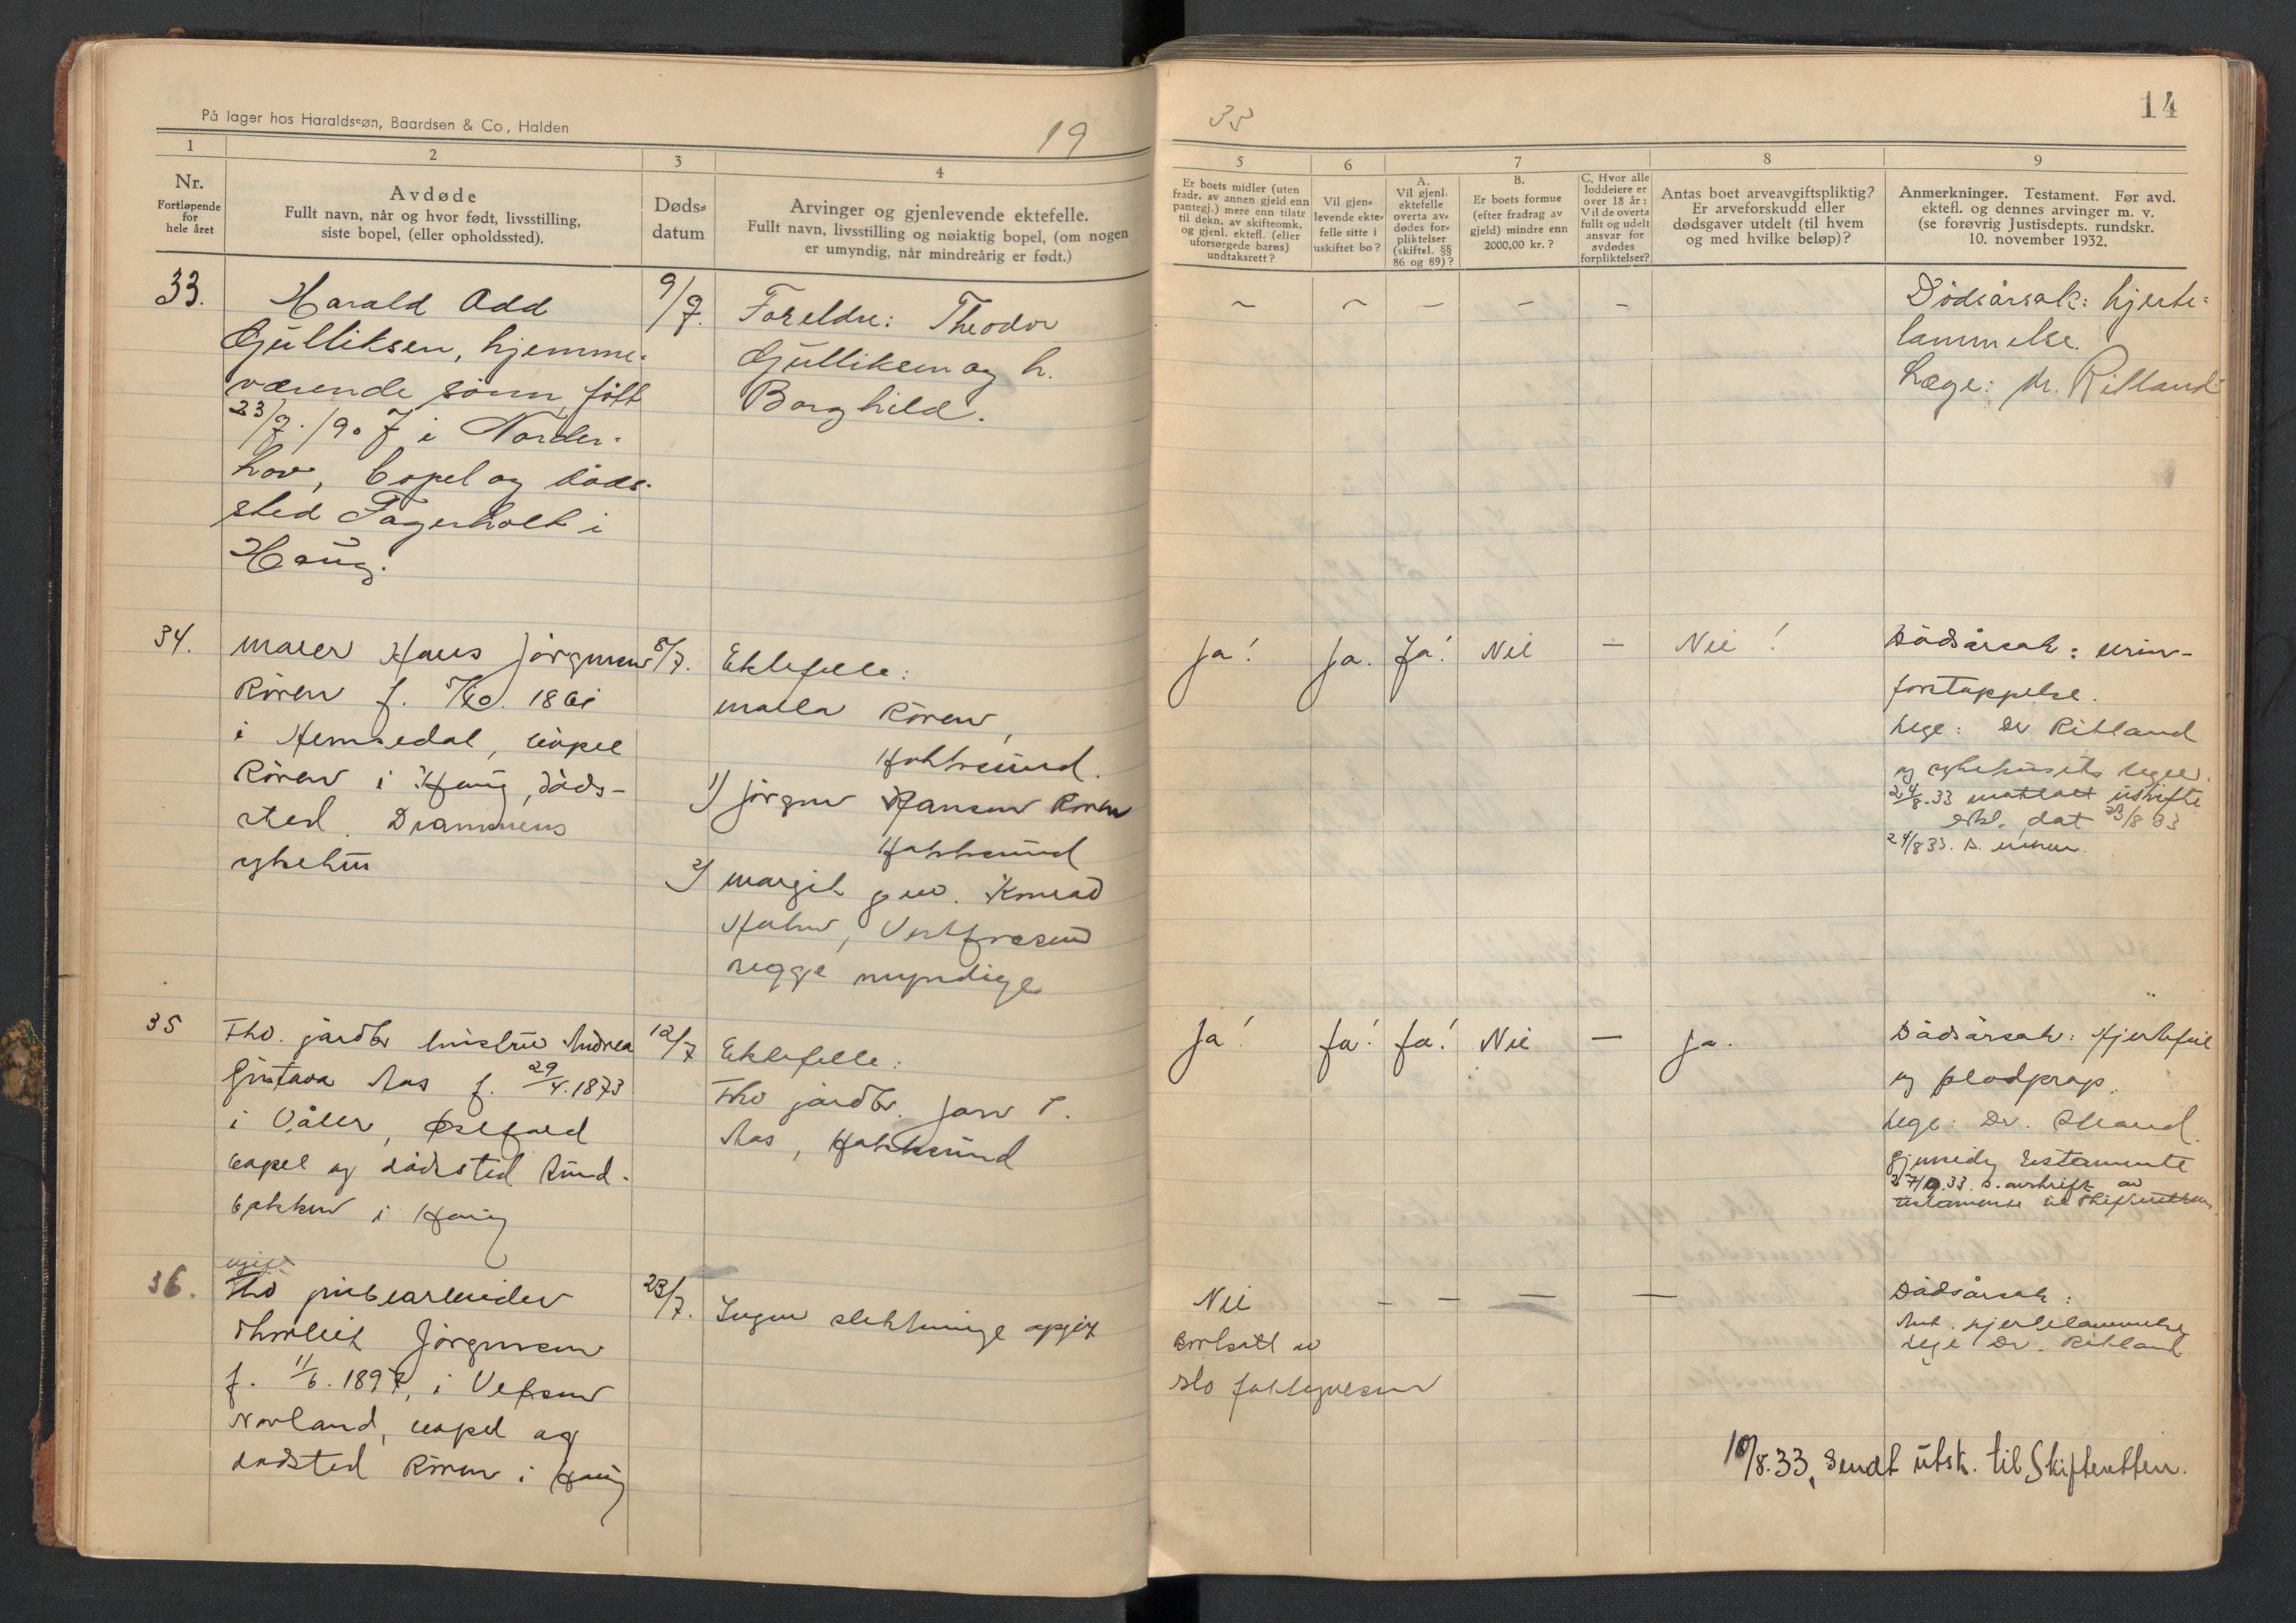 På lager hos Haraldssøn, Baardsen & Co, Halden
1933
14
1
2
3
4
5
6
7
8
9
Nr.
Fortløpende
for
hele året
Avdøde
Fullt navn, når og hvor født, livsstilling,
siste bopel, (eller opholdssted).
Døds-
datum
Arvinger og gjenlevende ektefelle.
Fullt navn, livsstilling og nøiaktig bopel, (om nogen
er umyndig, når mindreårig er født.)
Er boets midler (uten
fradr. av annen gjeld enn
pantegj.) mere enn tilstr
til dekn. av skifteomk.
og gjenl. ektefl. (eller
uforsørgede barns)
undtaksrett?
Vil gjen-
levende ekte-
felle sitte i
uskiftet bo?
A.
Vil gjenl.
ektefelle
overta av-
dødes for-
pliktelser
(skiftel. §§
86 og 89)?
B.
Er boets formue
(efter fradrag av
gjeld) mindre enn
2000,00 kr.?
C. Hvor alle
loddeiere er
over 18 år:
Vil de overta
fullt og udelt
ansvar for
avdødes
forpliktelser?
Antas boet arveavgiftspliktig?
Er arveforskudd eller
dødsgaver utdelt (til hvem
og med hvilke beløp)?
Anmerkninger. Testament. Før avd.
ektefl. og dennes arvinger m. v.
(se forøvrig Justisdepts. rundskr.
10. november 1932.
33.
Harald Odd
Gulliksen, hjemme-
værende sönn, født
23/7. 1907 i Norder-
hov, bopel og döds-
sted Fagerholt i
Haug.
9/7.
Foreldre: Theodor
Gulliksen og h.
Borghild.
~ ~ — — —
Dödsårsak: hjerte-
lammelse.
Læge: dr. Ritland
34.
maler Hans Jörgensen
Rören f. 1861
i Hemsedal, bopel
Rören i Haug, döds-
sted. Drammens
sykehus
8/7.
Ektefelle:
Rören,
Hokksund.
1) Jörgen Hansen Rören
Hokksund
2) Margit gm. Konrad
Vestfossen
begge myndige
Ja! Ja. Ja! Nei — Nei!
Dödsårsak: urin-
forstoppelse.
Lege: Dr Ritland
og sykehusets leger.
24/8.33 mottatt uskifte
erkl. dat 23/8 33
24/8 33. s.
35
Fhv. jardbr hustru Andrea
Gustava Aas f. 29/4.1873
i Våler, Østfold
bopel og dödssted Sund-
bakken i Haug
12/7
Ektefelle:
Fhv jardbr. Jan P.
Aas, Hokksund
Ja! Ja! Ja! Nei — Ja.
Dödsårsak: Hjertefeil
og blodprop.
Lege: Dr. Strand.
Gjensidig testamente
s. avskrift av
testamente til Skifteretten
36.
ugift
Fhv grubearbeider
Thorleif Jörgensen
f. 11/6.1897, i Vefsen
Norland, bopel og
dödsted Rören i Haug
23/7.
Ingen slektninge opgit
Nei — — — —
Bortsatt av
slo fattigvesen
Dödsårsak:
Ant. hjertelammelse
Lege Dr. Ritland
10/8.33, Sendt utsk. til Skifteretten.